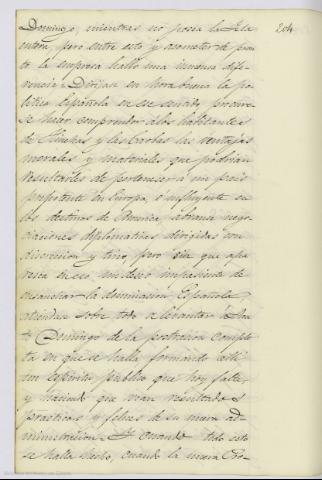 204
Domingo, mientras no posea la Isla
entera, pero entre esto y acometer de pron
to la empresa hallo una inmensa dife-
rencia. Dirijase en hora buena la po-
litica Española en ese sentido, procure-
se hacer comprender á los habitantes
de Hinchas y las Caobas las ventajas
morales y materiales que podrian
resultarles de pertenecer á un pais
prepotente en Europa, é influyente en
los destinos de America, abranse nego-
ciaciones diplomaticas dirigidas con
discrecion y tino, pero sin que apa-
rezca en eso un deseo impaciente de
ensanchar la dominacion Española,
atiendase sobre todo á levantar á San
to Domingo de la postracion comple
ta en que se halla formando allí
un espiritu publico que hoy falta,
y haciendo que vean resultados
practicos y felices de su nueva ad-
ministracion. Y cuando todo esto
se halla hecho, cuando la nueva Pro-